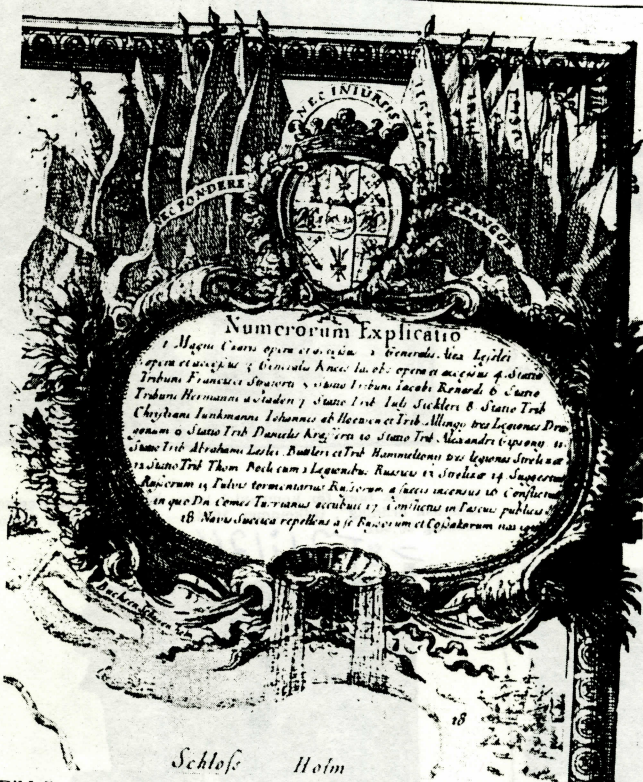 NEC INIURIIS
NEC PONDERE
FRANGOR
Numerorum Explicatio
1 Magni Czaris opera et accessus 2 Generalis Alex Lesslei
opera et accessus 3 Generalis Knees Jacobs opera et accessus 4 Statio
Tribuni Francisci 5 Statio Tribuni Jacobi Renardi 6 Statio
Tribuni Hermanni a Staden 7 Statio Trib Julij Sickleri 8 Statio Trib
Christiani Junkmanni Johannis ab Hoeven et Trib Allingi tres Legiones Dra
gonum 9 Statio Trib Danielis 10 Statio Trib Alexandri Gipsony 11
Statio Trib Abrahami Leslei Buttleri et Trib Hammeltonij tres legiones Strelizar
12 Statio Trib Thom Boeli cum 2 Legionibus Russicis 13 Strelizar 14 Suggestus
Russorum 15 Pulvis tormentarius Russorum a suecis incensus 16 Conflictus
in quo Dn Comes Turrianus occubuit 17 Conflictus in Pascuis publicis
18 Navis Suecica repellens a se Russorum et Cosakorum
18
Schloss Holm